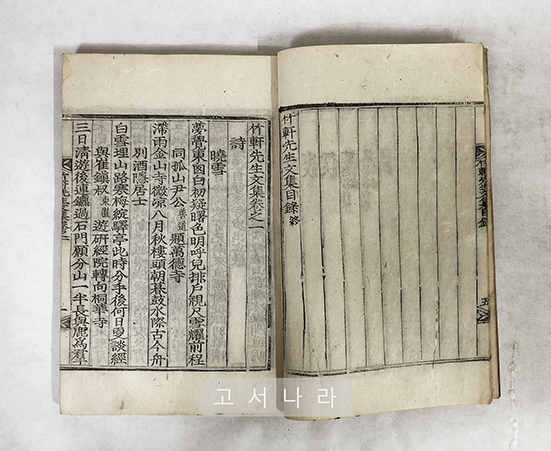 竹軒先生文集目錄終
竹軒先生文集目錄
五
竹軒先生文集卷之一
詩
曉雪
夢覺東囱白初疑曙色明呼兒排戶視尺雪耀前程
同孤山尹公善道題萬德寺
滯雨金山寺微凉八月秋樓頭朝暮鼓水際古今舟
別酒隱居士
白雪埋山路寒梅綻驛亭此時分手後何日更談經
與崔鎭叔東遊研經院轉向桐華寺
三日清遊後連鑣過石門願分山一半長與鹿爲羣
一
고서나라